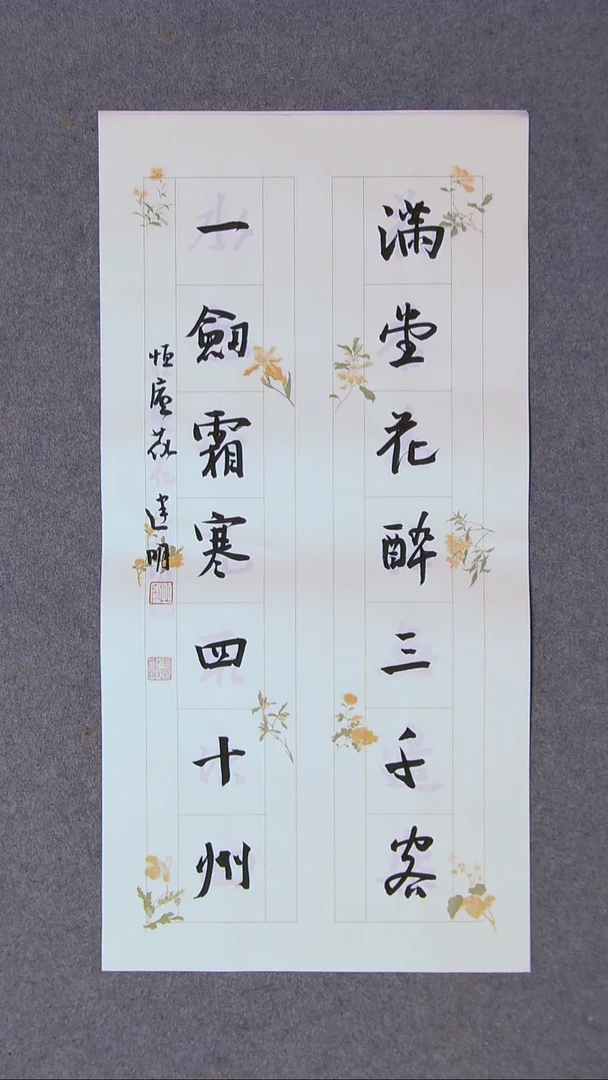 满堂花醉三千客
一劔霜寒四十州
恒庵荻建明